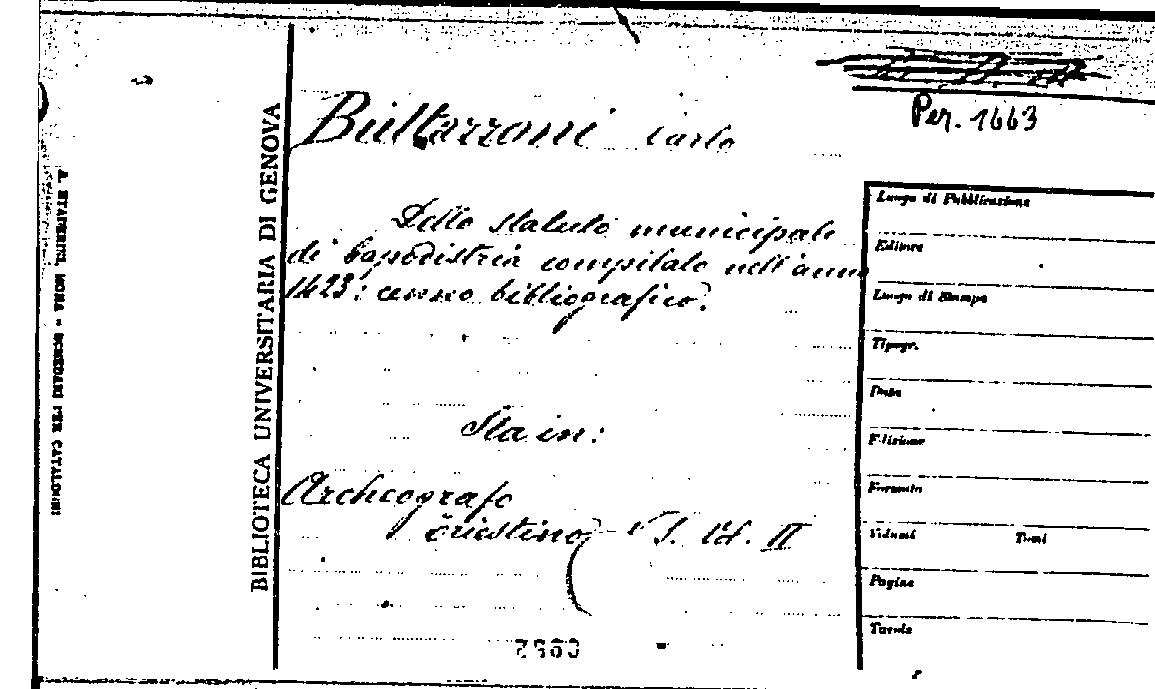 Per. 1663
Buttazzoni Carlo
Dello statuto municipale
di Capodistria compilato nell'anno
1423: cenno bibliografico.
Sta in:
Archeografo
Triestino N. S. Vol. II
BIBLIOTECA UNIVERSITARIA DI GENOVA
A. STADERINI, ROMA - SCHEDARI PER CATALOGHI
Luogo di Pubblicazione
Editore
Luogo di Stampa
Tipogr.
Data
Edizione
Formato
Volumi Tomi
Pagine
Tavole